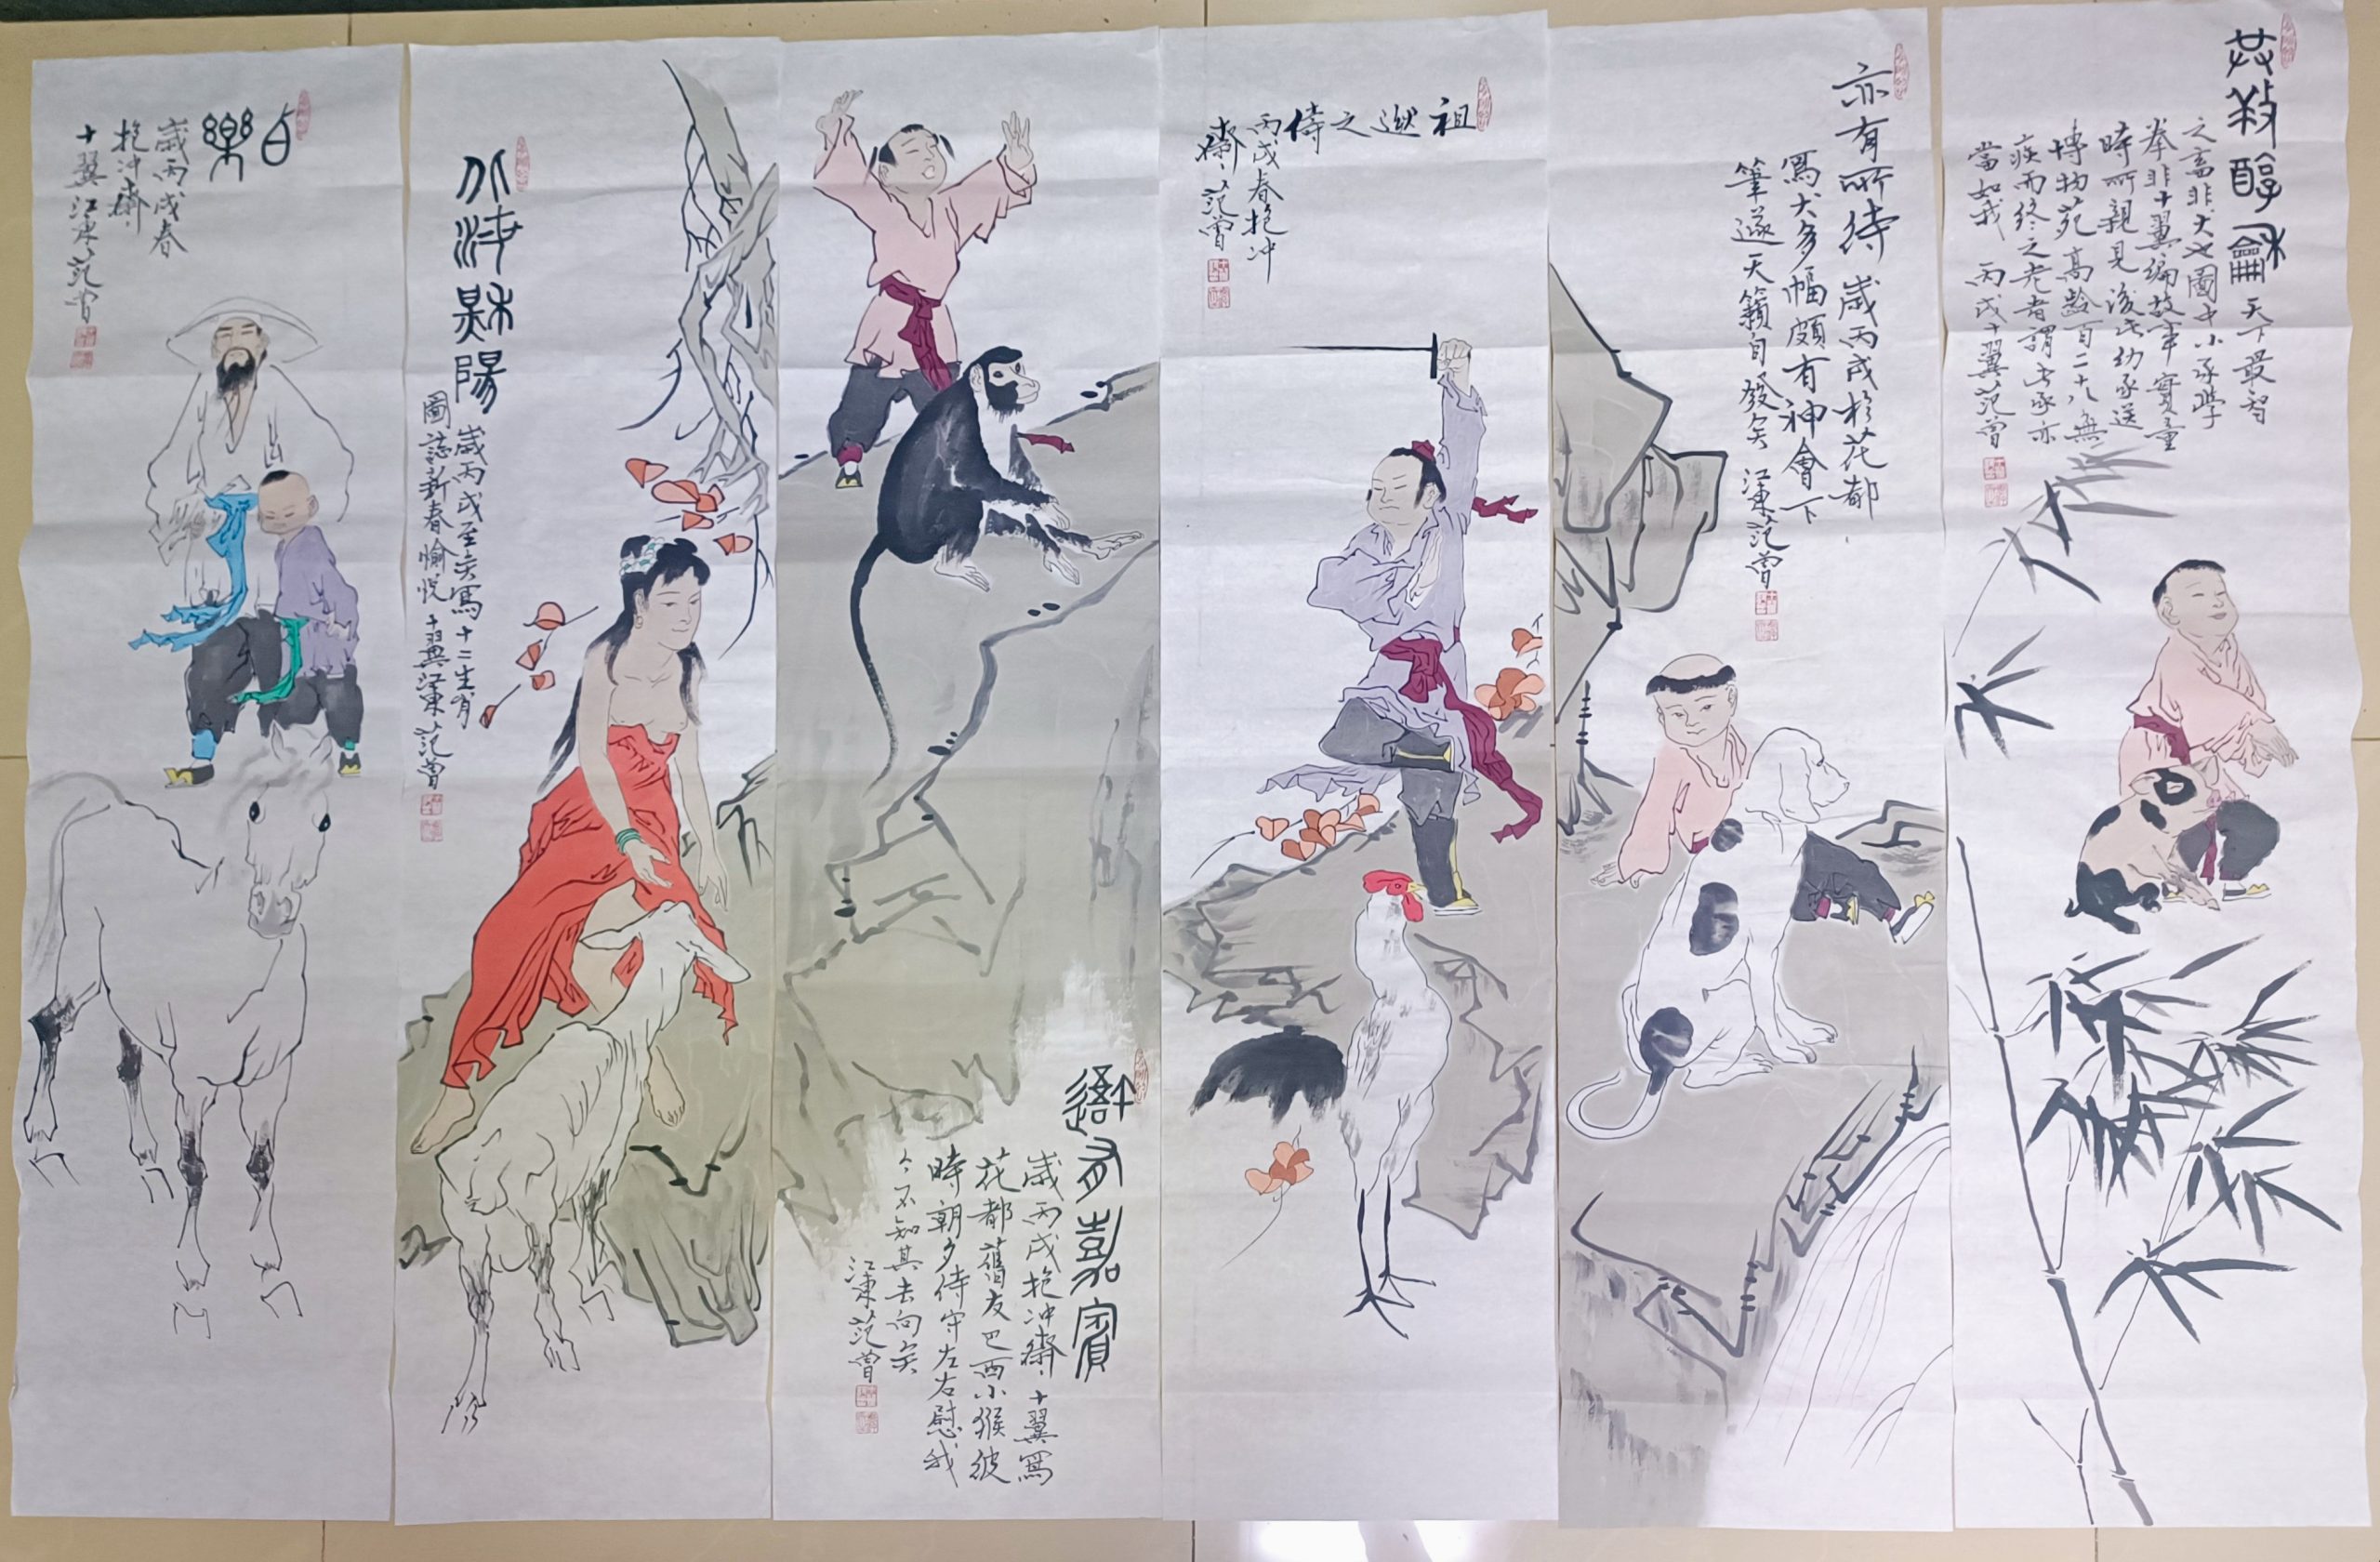 自樂
歲丙戌春
抱冲齋
十翼江東范曾
歲丙戌至矣寫十二生肖
圖誌新春愉悅十翼江東范曾
歲丙戌抱冲齋十翼寫
花都舊友巴西小猴彼
時朝夕侍守左右慰我
今不知其去向矣
江東范曾
祖逖之侍
丙戌春抱冲
齋范曾
亦有所待歲丙戌於花都
寫犬多幅頗有神會下
筆遂天籟自發矣江東范曾
天下最智
之畜非犬也圖中小豕學
拳非十翼編故事實童
時所親見後此幼豕送
博物苑高齡百二十八無
疾而終之老者謂此豕亦
當如我丙戌十翼范曾